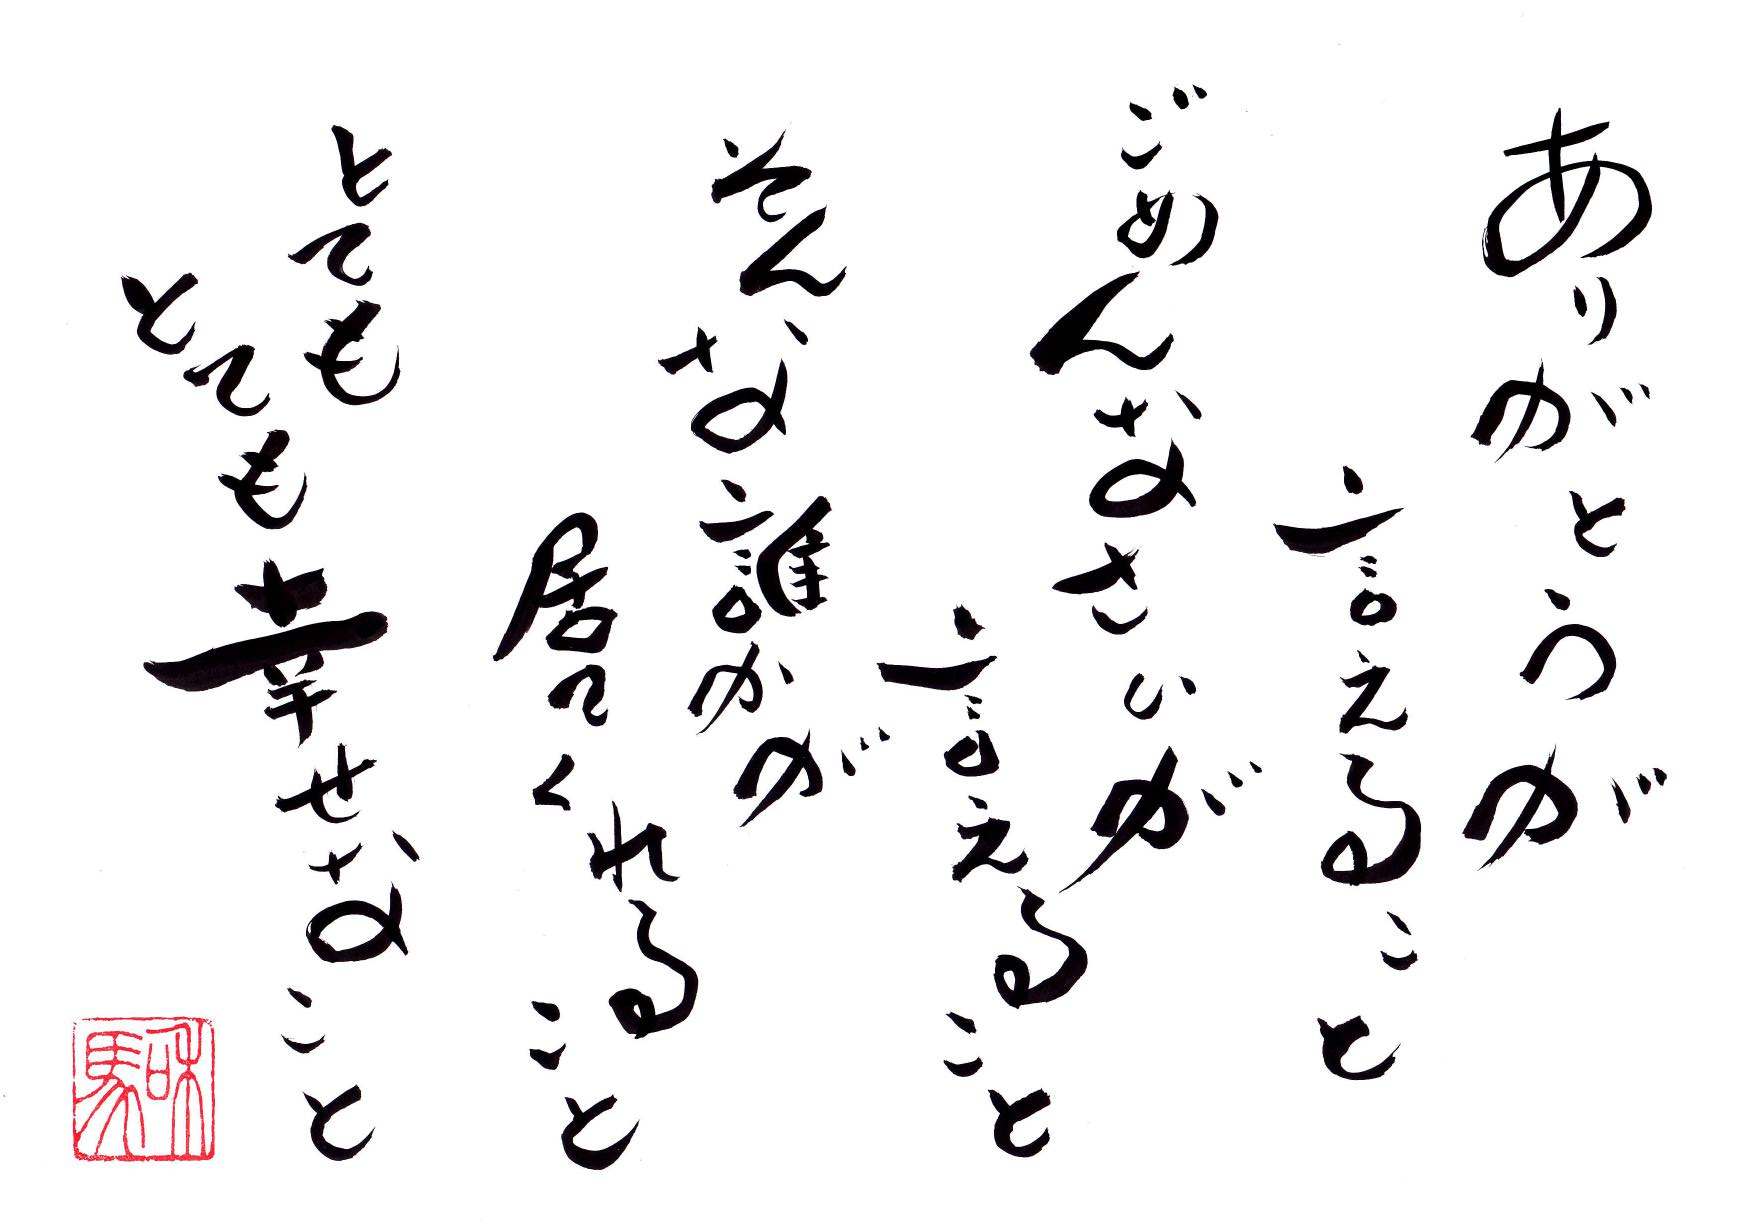 ありがとうが
言えること
ごめんなさいが
言えること
そんな誰かが
居てくれること
とても
とても幸せなこと